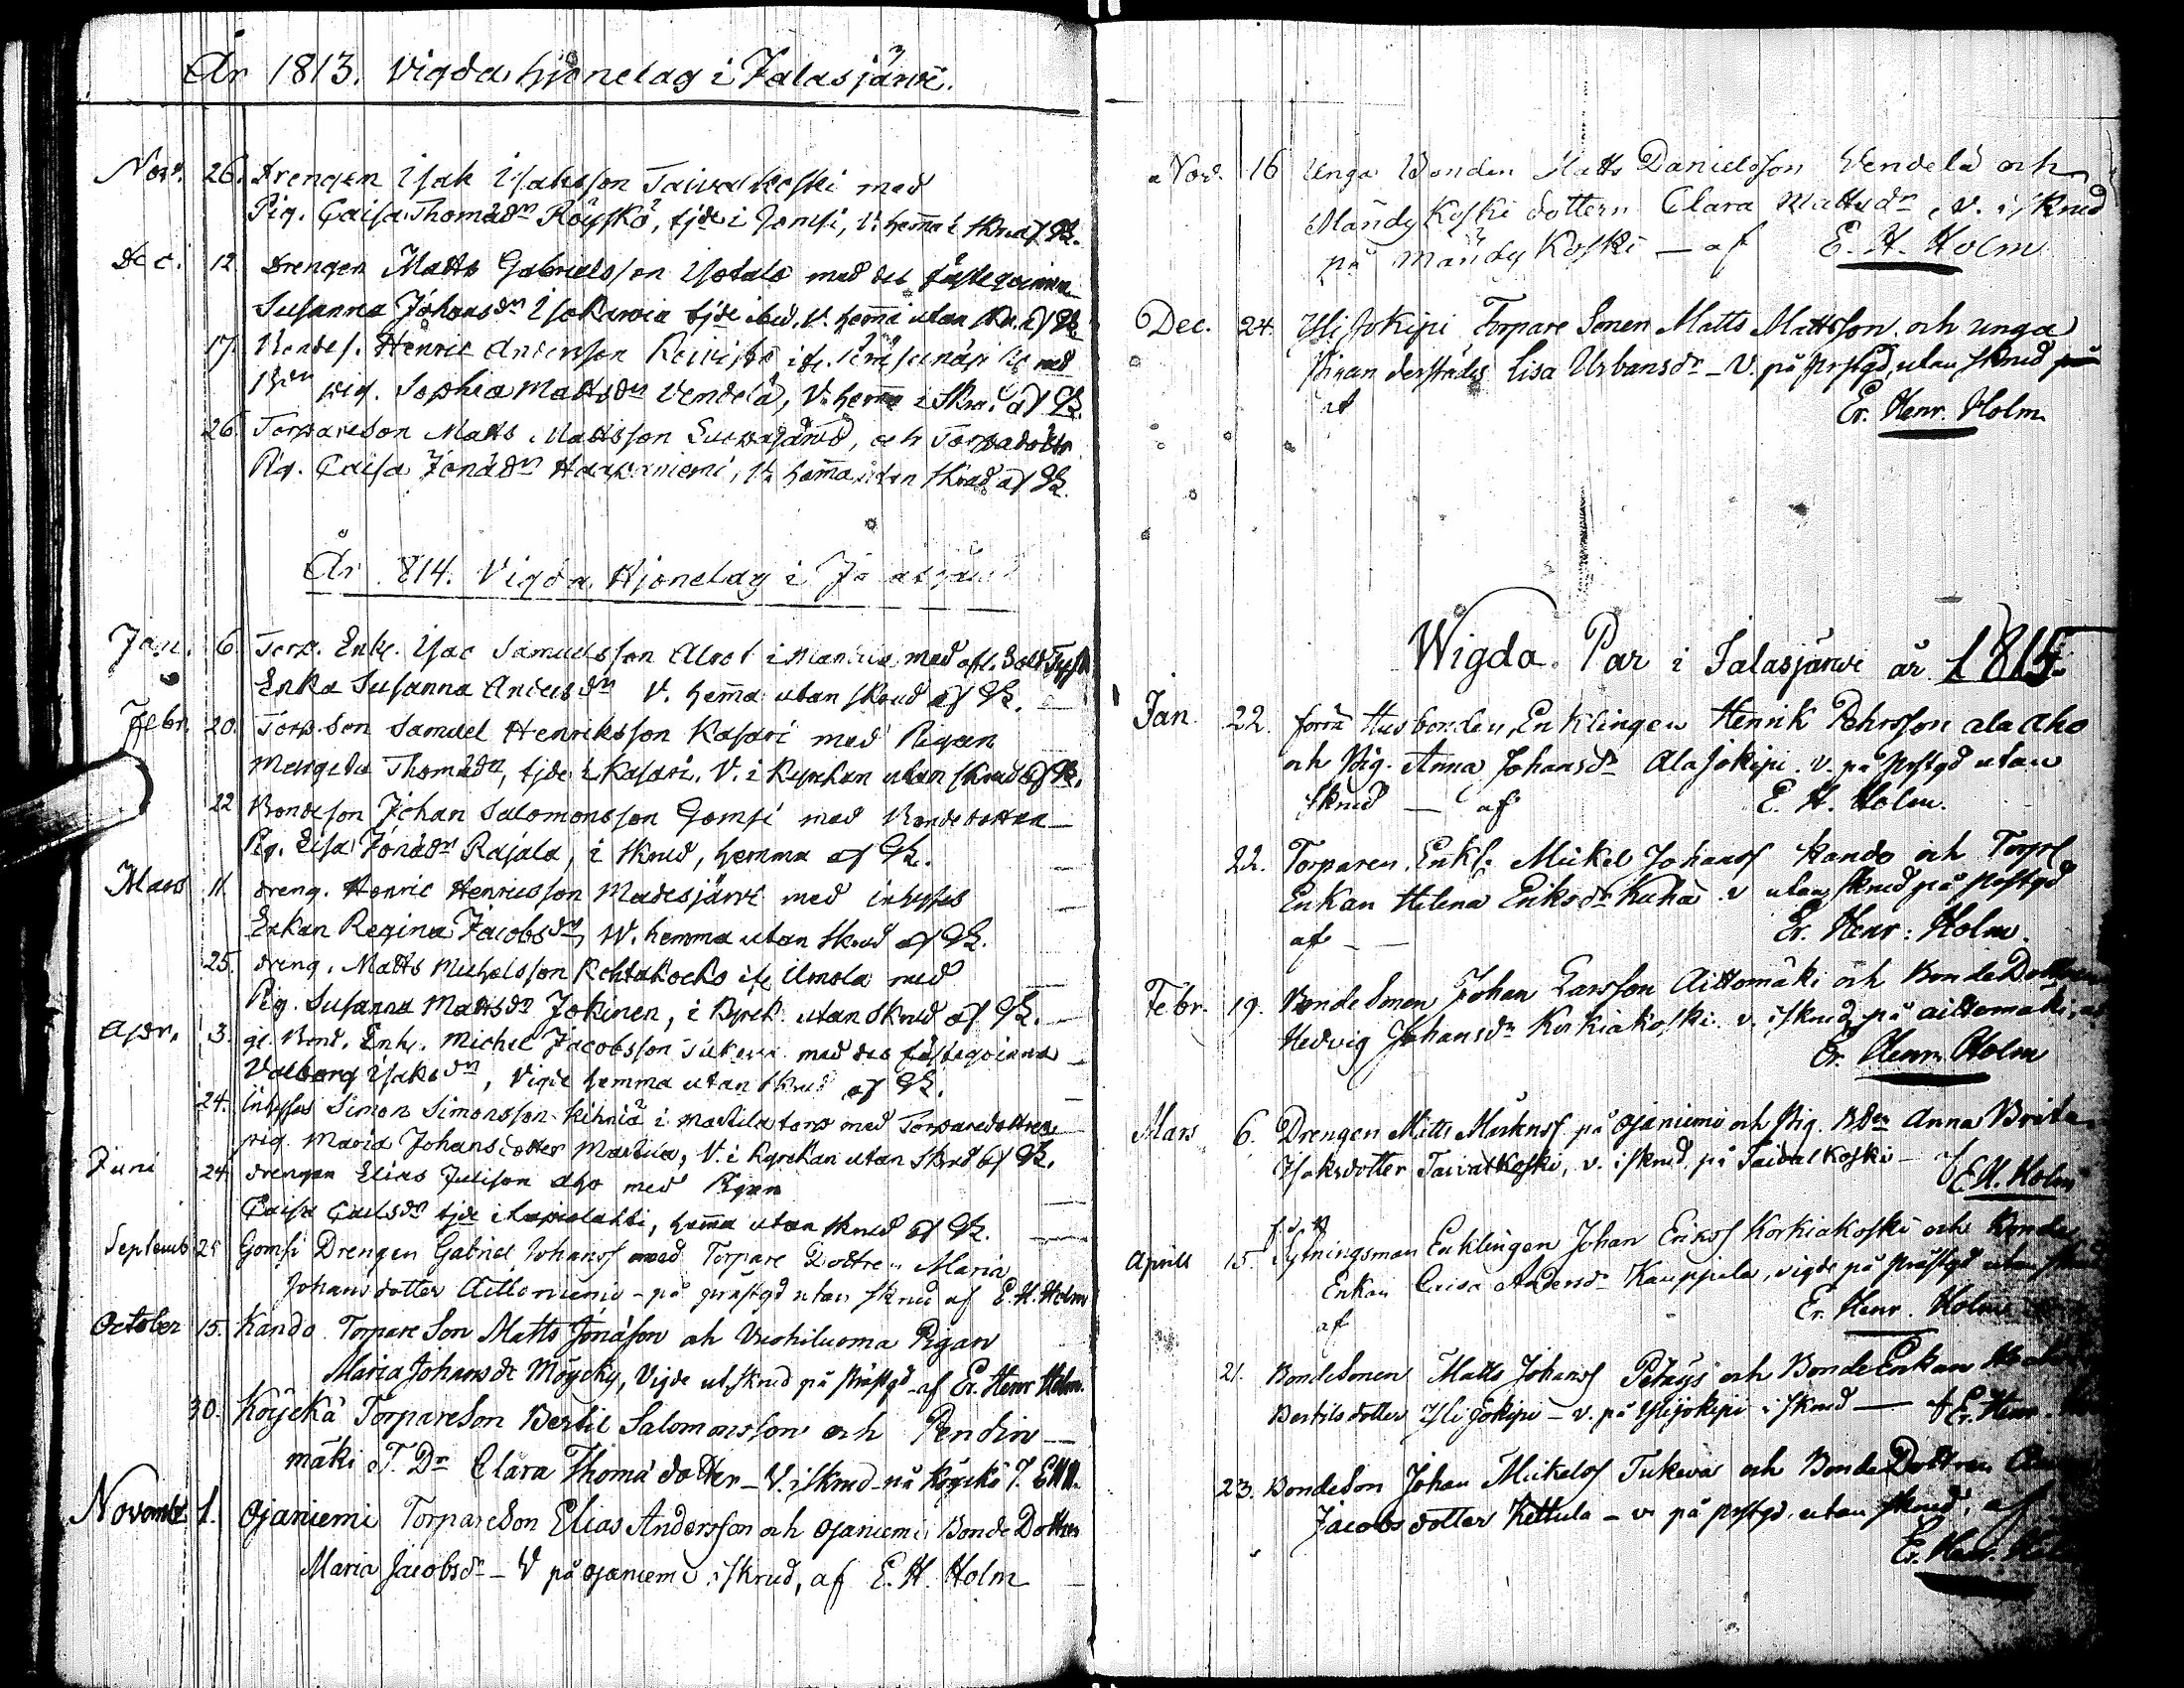 År 1813. Vigda hjonelag i Jalasjärvi.
Nov. 26. Drengen Isak Isaksson Taivalkoski med
Pig. Caisa Thomædn Röyskö, tjde i Jomsi, V. hema i skrud af
Dec. 12 Drengen Matts Gabrielsson Isotalo med des fästeqvinna
Susanna Johansdn Isokawia tjde ibid. V. hema utan skr. af
17. Bondes. Henric Andersson med
Bdn pig. Sophia Mattsdn Vendelä, V. hema i skru. af
26. Torpareson Matts Mattsson och Torpadottr
Pig. Caisa Jonædn Haapaniemi, V. hema utan skrud af
År 1814. Vigda Hjonelag i Jalasjärvi
Jan. 6 Torp. Enkl. Isac Samuelsson i med afl. Sold.
Enka Susanna Andersdn V. hema utan skrud af
Febr. 20. Torp. Son Samuel Henriksson Kasari med Pigan
Margeta Thomædn, tjde i Kasari, V. i Kyrckan utan skrud af
22 Bondeson Johan Salomonsson Gomsi med Bondedottren
Pig. Lisa Jonædn Rajala, i skrud, hemma af
Mars 11. Dreng. Henric Henricsson Madesjärvi med inhyses
Enkan Regina Jacobsdn, W. hemma utan skrud af
25. Dreng. Matts Michelsson Kohtakocko ifr Ilmola med
Pig. Susanna Mattsdn Jokinen, i Kyrck. utan skrud af
Apr. 3. gl. Bond. Enkl. Michel Jacobsson med des fästeqvinna
Valborg Isaksdn, Vigde hemma utan skrud af
24. Inhyses Simon Simonsson Kihniä i Mantila torp med Torparedottren
pig. Maria Johansdotter Mantila, V. i Kyrckan utan skrud af
Juni 24. Drengen Elias Julison Aho med Pigan
Caisa Carlsdn tjde i Lapiolahti, hema utan skrud af
Septemb 25 Gomsi Drengen Gabriel Johanss med Torpare Dottren Maria
Johansdotter Aittoniemi - på prästgd utan skrud af E. H. Holm
October 15. Kando Torpare Son Matts Jonæson och Vuohiluoma Pigan
Maria Johansdr Möycky, Vigde ut. skrud på Prästgd af Er. Henr Holm.
30. Köyckä TorpareSon Bertil Salomonsson och Pendin-
mäki T. Dr Clara Thomædotter - V. i skrud på Köyckä
Novembr 1. Ojaniemi TorpareSon Elias Andersson och Ojaniemi Bonde Dottren
Maria Jacobsdr - V på Ojaniemi i skrud, af E. H. Holm
Nov. 16 Unga Bonden Matts Danielsson Vendelä och
Mändykoski dottern Clara Mattsdr, V. i skrud
på Mändykoski - af E. H. Holm
Dec. 24. Yli Jokipi Torpare Sonen Matts Mattsson och unga
Pigan derstädes Lisa Urbansdr - V. på Prstgd, utan skrud
af Er. Henr. Holm
Wigda Par i Jalasjärvi år 1815.
Jan. 22. förra Husbonden, Enklingen Henrik Pehrsson ala Aho
och Pig. Anna Johansdr Alajokipi. v. på Prstgd utan
skrud - af E. H. Holm.
22. Torparen Enkl. Mickel Johanss Kando och Torp
Enkan Helena Eriksdr Kuha v utan skrud på Prstgd
af - Er. Henr: Holm.
Febr. 19. BondeSonen Johan Larsson Aittomäki och BondeDottren
Hedvig Johansdr Korkiakoski v. i skrud på Aittomäki, af
Er. Henr. Holm
Mars 6. Drengen Matts Markuss på Ojaniemi och Pig. Bden Anna Brita
Isaksdotter Taivalkoski, v. i skrud på Taivalkoski - af
E. H. Holm
f. d.
Aprill 15. Sytningsman Enklingen Johan Erikss Korkiakoski och Bonde
Enkan Caisa Andersdr Kauppula, vigde på Prästgd utan skrud
af Er. Henr. Holm
21. BondeSonen Matts Johanss Petäys och BondeEnkan
Bertilsdotter Yli Jokipi - v. på Ylijokipi i skrud - af Er. Henr.
23. BondeSon Johan Mickelss Tukeva och BondeDottren
Jacobsdotter Kettula - v. på Prstgd. utan skrud, af
Er. Henr. Holm